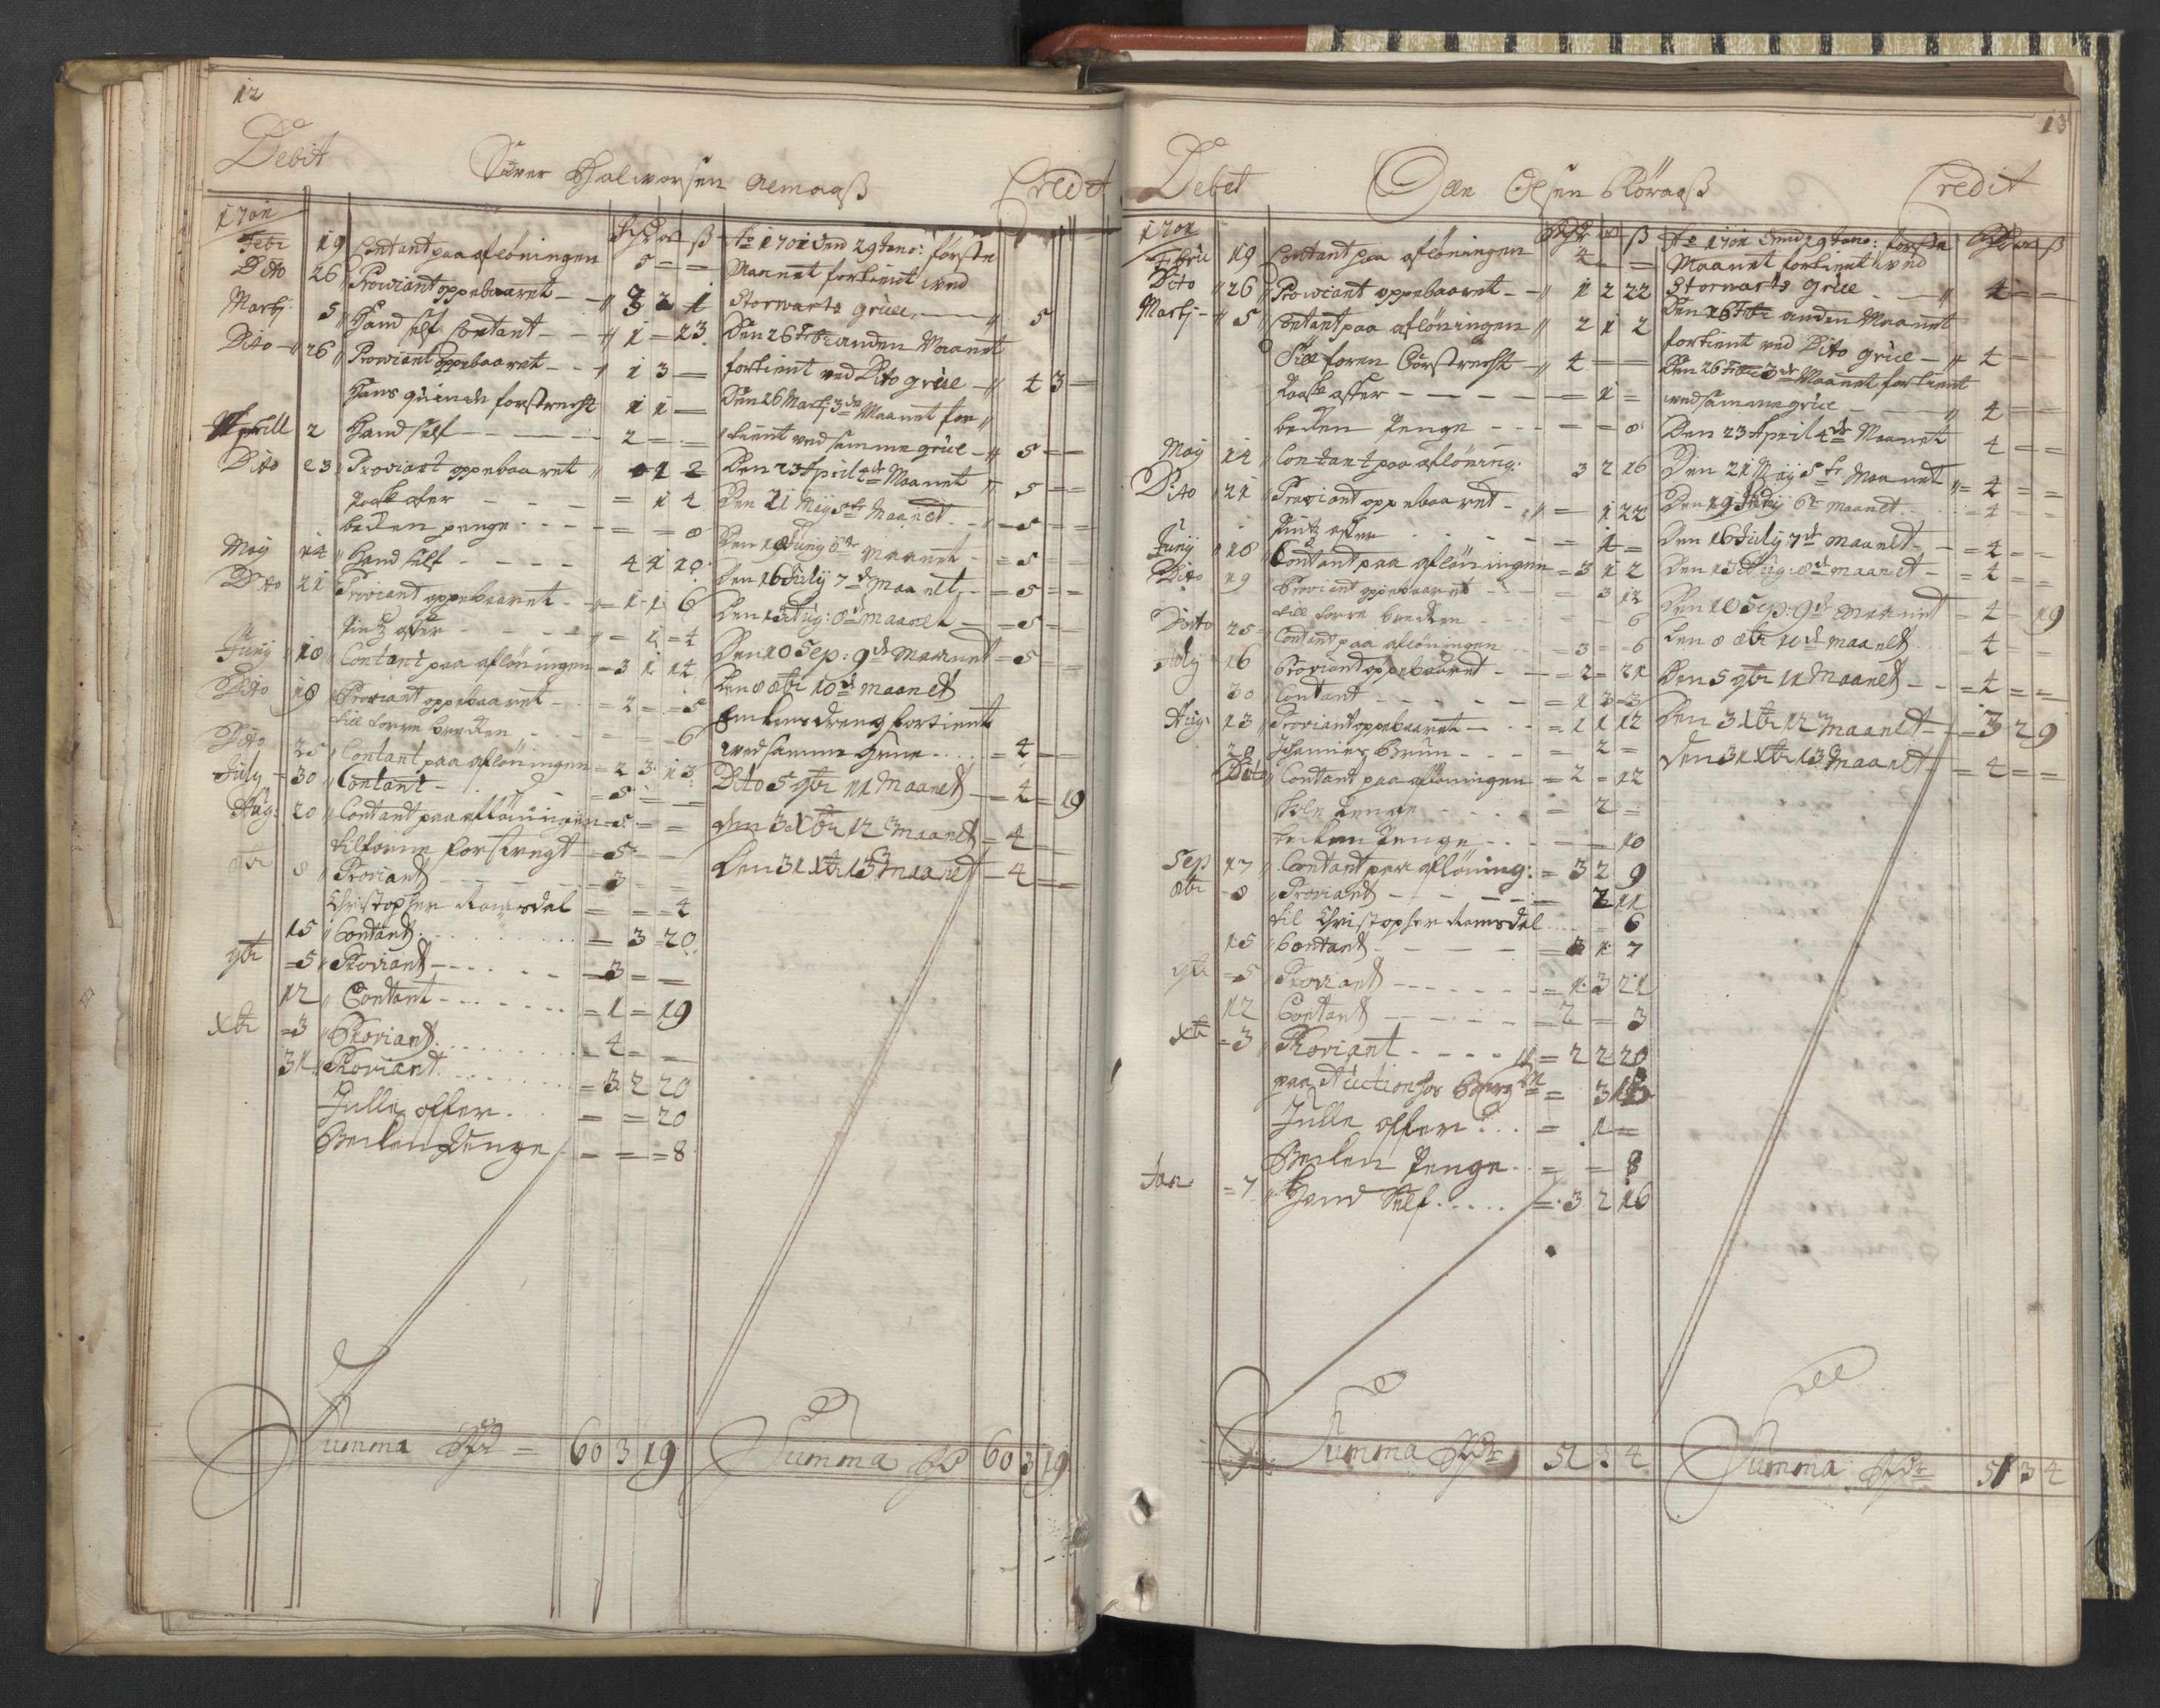 12
Debit Siver Halworsen Aemaaß Credit
1701
Febr 19 Contant paa aflöningen 5 = =
Dito 26 Prowiant oppebaaret 3 2 1
Martj 5 Hand self Contant 1 = 23
Dito 26 Prowiant oppebaaret 1 3 =
Hans quinde forstrecht 1 1 =
Aprill 2 Hand self 2 = =
Dito 23 Proviant oppebaaret 1 2
Paaske offer = 1 4
beden penge = = 8
Maij 14 Hand self 4 1 10
Dito 21 Proviant oppebaaret 1 1 6
Pintz offer = 1 = 4
Junij 18 Contant paa aflöningen = 3 1 14
Dito 19 Proviant oppebaaret = 2 = 5
till torre bredden = = 6
Dito 25 Contant paa aflöningen = 2 3 13
July 30 Contant = 5 = =
Aug: 20 Contant paa aflöningen = 5 = =
tilforne forstregt = 5 =
8br 8 Proviant = 3 = =
Christopher Ramsdal = = = 4
15 Contant = 3 = 20
9br = 5 Proviant = 3 = =
12 Contant = 1 = 19
Xbr = 3 Proviant = 4 = =
31 Proviant = 3 2 20
Julle offer = = 20
Becken Penge = = = 8
Summa Rdr = 60 3 19
Ao 1701 den 29 Jano: förste
Maanet fortient wed
Storwarts grue 5
Den 26 Febr anden Maanet
fortient wed Dito grue 4 3 =
Den 26 Martj 3de Maanet for
tient wed samme grue 5 = =
Den 23 April 4de Maanet 5 = =
Den 21 Maij 5te Maanet = 5 = =
Den 18 Junij 6te Maanet = 5 = =
Den 16 Julij 7de Maanet = 5 = =
Den 13 Aug: 8de maanet = 5 =
Den 10 Sep: 9de Maanet = 5 =
Den 8 8br 10de maanet
Enkens dreng fortient
wed samme Grue = 4 =
Dito 5 9br 11 Maanet = 4 = 19
den 3 Xbr 12 maanet = 4 =
Den 31 Xbr 13 maanet = 4 = =
Summa Rd 60 3 19
13
Debet Olle Olsen Röraaß Credit
1701
Febru 19 Contant paa aflöningen 4 = =
Dito 26 Prowiant oppebaaret 1 2 22
Martj 5 Contant paa aflöningen 2 1 2
Till foren Forstrecht 4 = =
Paaske offer = 1 =
beden Penge = = 8
Maij 14 Contant paa aflöning: 3 2 16
Dito 21 Proviant oppebaaret = 1 22
Pintz offer = 1 =
Junij 18 Contant paa aflöningen = 3 1 2
Dito 19 Proviant oppebaaret = 3 12
till torre bredden = = 6
Dito 25 Contant paa aflöningen = 3 = 6
July 16 Proviant oppebaaret = 2 = 21
30 Contant = 1 3 = 3
Aug: 13 Proviant oppebaaret = 1 1 12
20 Johannes Bruun = 2 =
Dito Contant paa aflöningen = 2 = 12
penge = 2 =
becken Penge = 10
Sep 17 Contant paa aflöning: = 3 2 9
8br 8 Proviant = 2 11
til Christopher Ramsdal = 6
15 Contant = 3 1 7
9br = 5 Proviant = 1 3 21
12 Contant = 2 = 3
Xbr = 3 Proviant = 2 2 20
paa Auction hos = 3
Julle offer = 1 =
Becken Penge = = 8
Jan = 7 Hand Self = 3 2 16
Summa Rdr 51 3 4
Ao 1701 den 29 Jano: förste
Maanet fortient wed
Storwarts grue 4 = =
Den 26 Febr anden Maanet
fortient ved Dito grue 4 =
Den 26 3de Maanet fortient
wed samme grue 4 = =
Den 23 April 4de Maanet 4 = =
Den 21 Maij 5te Maanet = 4 = =
Den 19 Junij 6te maanet = 4 = =
Den 16 Julij 7de maanet = 4 = =
Den 13 Aug: 8de maanet = 4 = =
Den 10 Sep: 9de maanet = 4 = 19
Den 8 8br 10de maanet = 4 = =
Den 5 9br 11 Maanet = 4 = =
Den 3 Xbr 12 maanet = 3 2 9
Den 31 Xbr 13 maanet = 4 = =
Summa Rdr 51 3 4